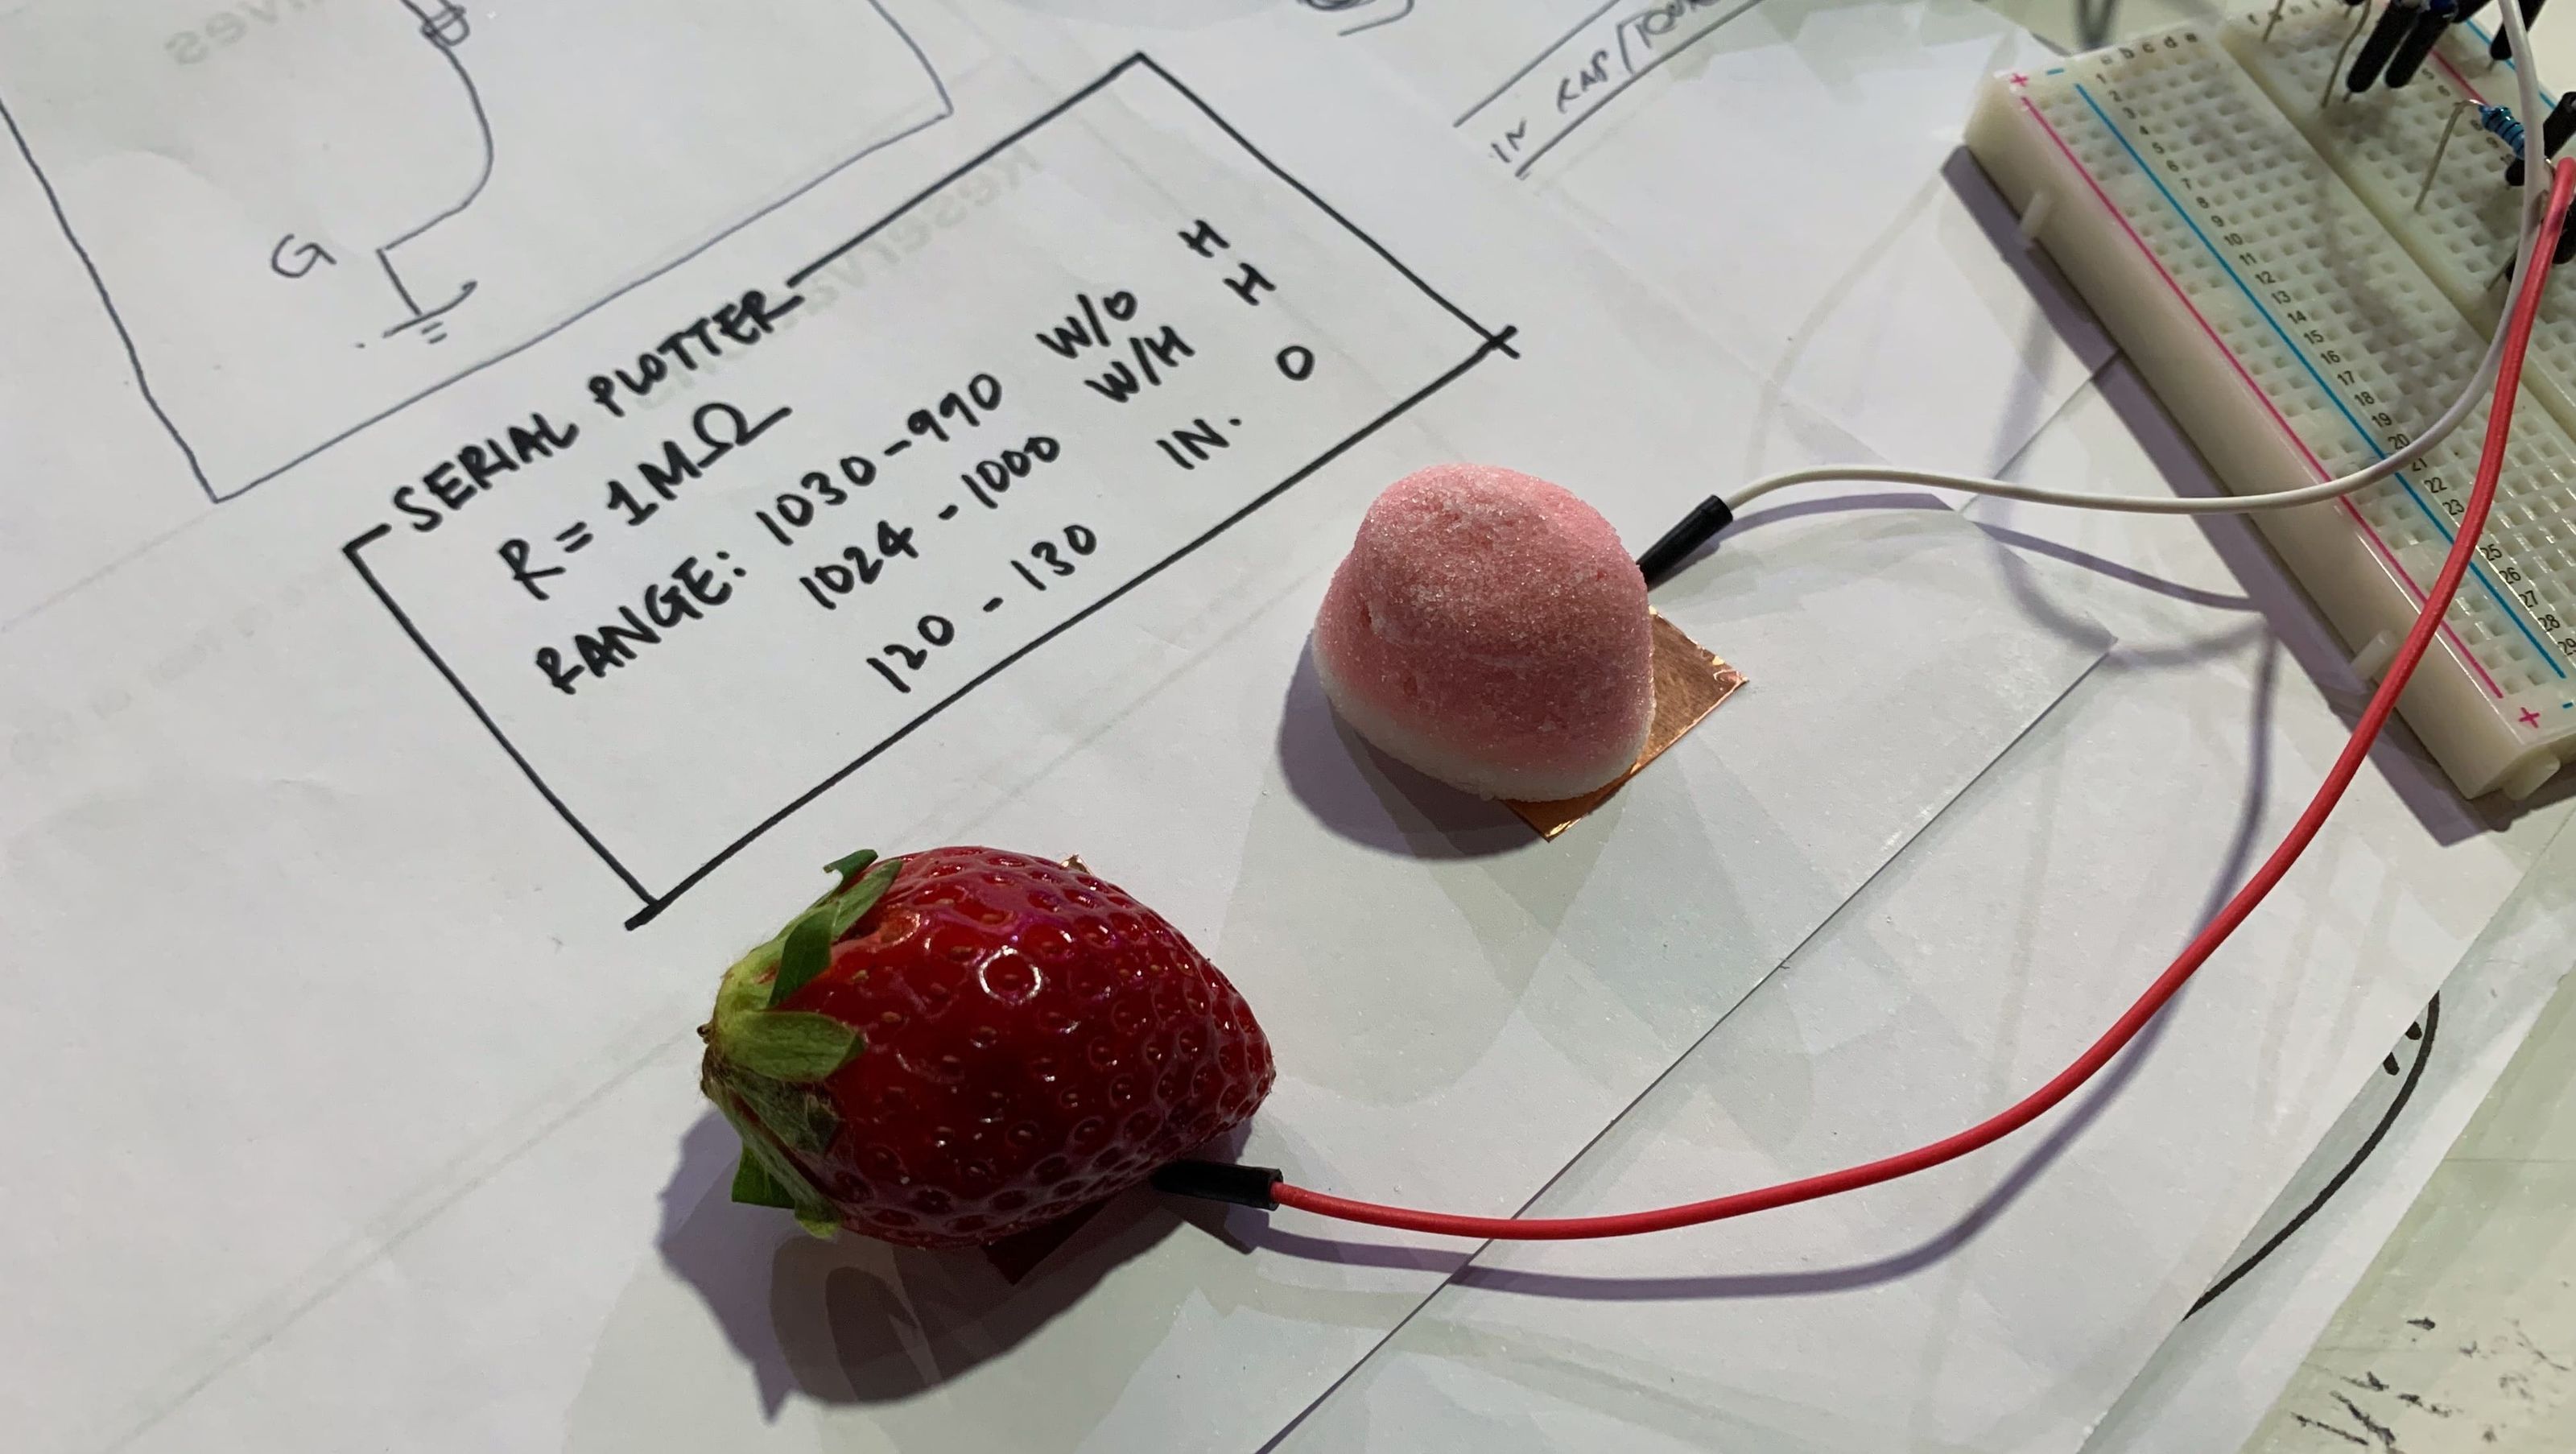 G
IN CAP/TOUCH
SERIAL PLOTTER
R = 1MΩ
RANGE: 1030-990 W/O H
1024-1000 W/H H
120-130 IN. O
a b c d e
+ -
1
2
3
4
5
6
7
8
9
10
11
12
13
14
15
16
17
18
19
20
21
22
23
25
26
27
28
29
+ -